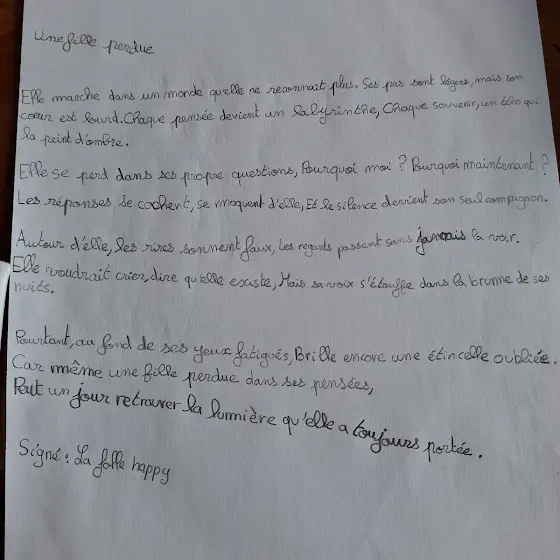 Une fille perdue
Elle marche dans un monde qu'elle ne reconnait plus. Ses pas sont légers, mais son
cœur est lourd. Chaque pensée devient un labyrinthe, Chaque souvenir, un écho qui
la peint d'ombre.
Elle se perd dans ses propre questions, Pourquoi moi ? Pourquoi maintenant ?
Les réponses se cachent, se moquent d'elle, Et le silence devient son seul compagnon.
Autour d'elle, les rires sonnent faux, Les regards passent sans jamais la voir.
Elle voudrait crier, dire qu'elle existe, Mais sa voix s'étouffe dans la brume de ses
nuits.
Pourtant, au fond de ses yeux fatigués, Brille encore une étincelle oubliée.
Car même une fille perdue dans ses pensées,
Peut un jour retrouver la lumière qu'elle a toujours portée.
Signé : La folle happy